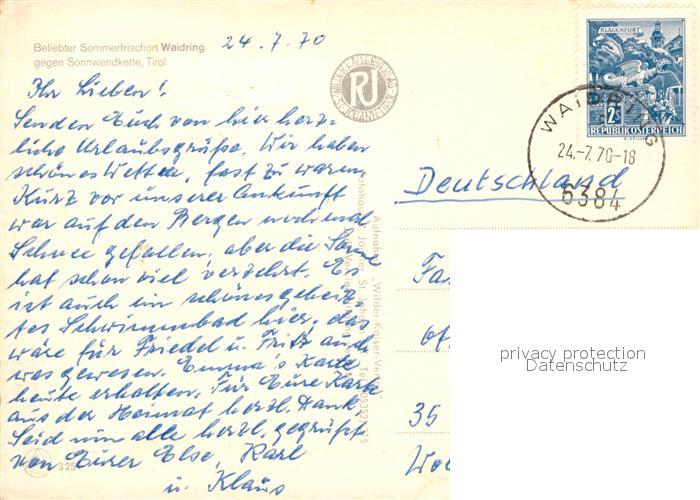 Beliebter Sommerfrischort Waidring
gegen Sonnwendkette, Tirol
24.7.70
Ihr Lieben!
Senden Euch von hier herz-
liche Urlaubsgrüße. Wir haben
schönes Wetter, fast zu warm.
Kurz vor unserer Ankunft
war auf den Bergen nochmal
Schnee gefallen, aber die Sonne
hat schon viel verzehrt. Es
ist auch ein schönes geheiz-
tes Schwimmbad hier, das
wäre für Friedel u. Fritz auch
was gewesen. Emma's Karte
heute erhalten. Für Eure Karte
aus der Heimat herzl. Dank
Seid nun alle herzl. gegrüßt
von Eurer Else, Karl
u. Klaus
325
RJ
Aufnahme "Wilder-Kaiser-Verlag"
KLAGENFURT
S 2
REPUBLIK ÖSTERREICH
WAIDRING
24.-7.70-18
6384
Deutschland
Fa
35
privacy protection
Datenschutz